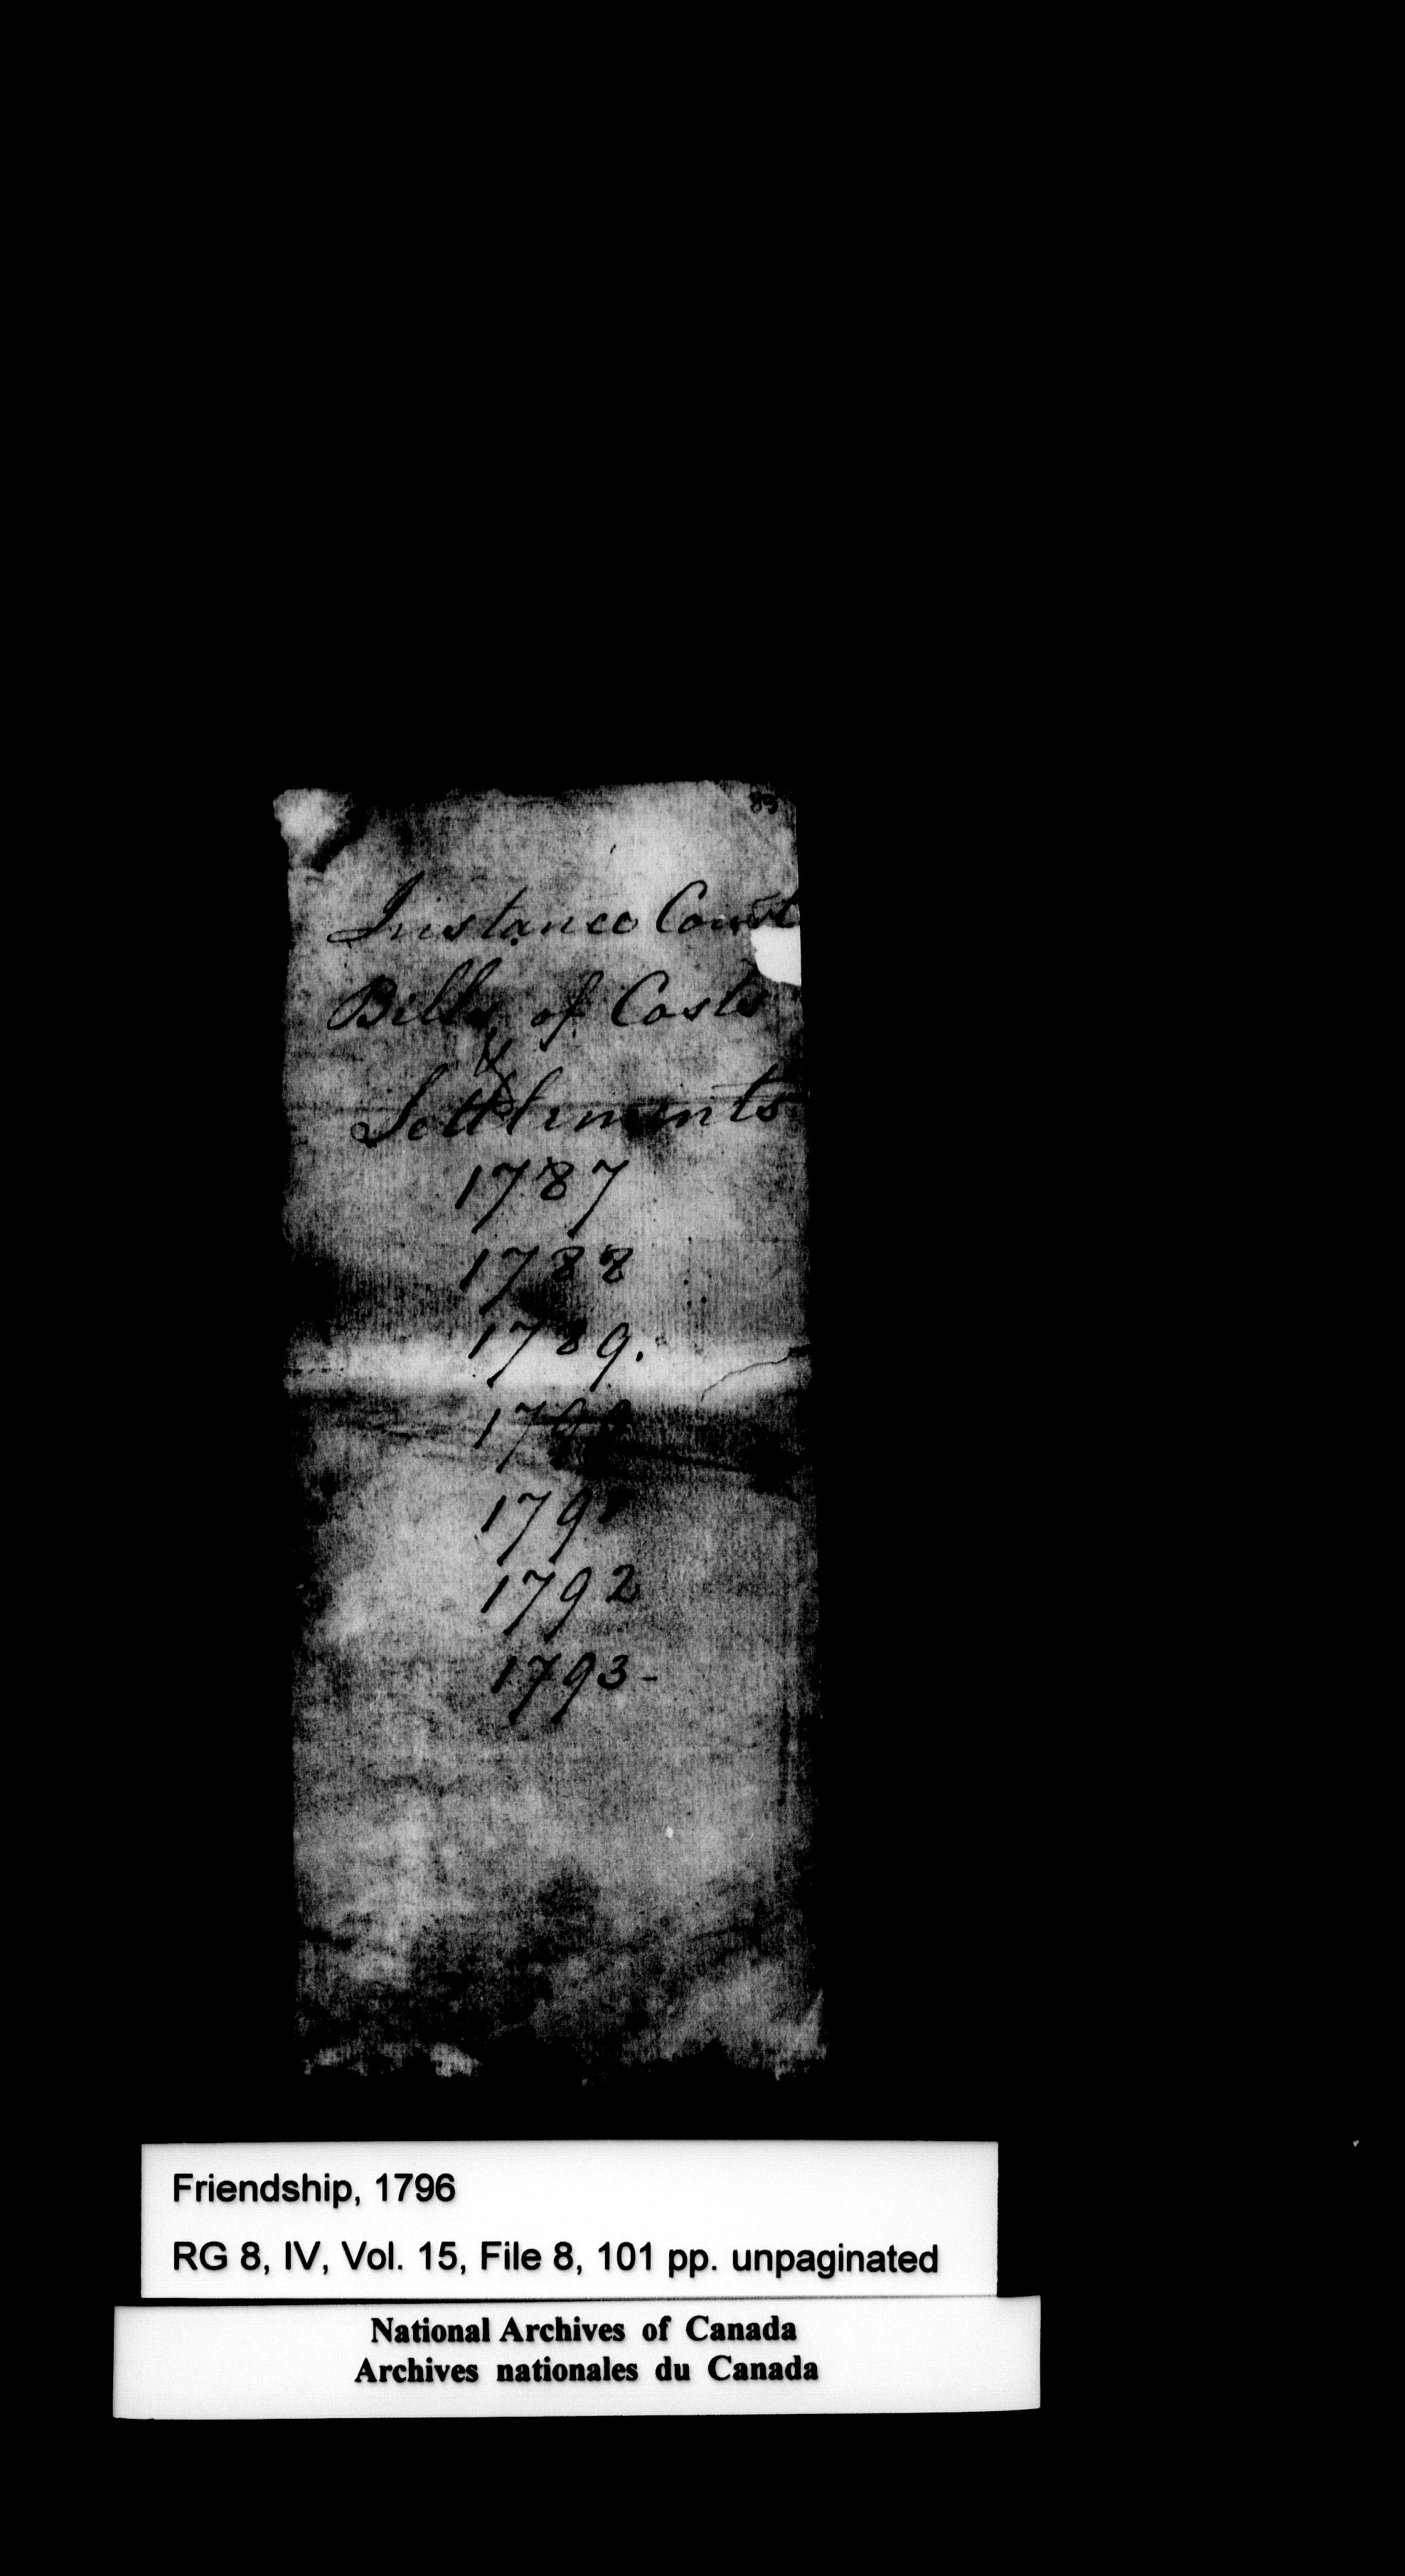 89
Instance Court
Bills of Costs
&
Settlements
1787
1788
1789.
1790
1791
1792
1793-
Friendship, 1796
RG 8, IV, Vol. 15, File 8, 101 pp. unpaginated
National Archives of Canada
Archives nationales du Canada